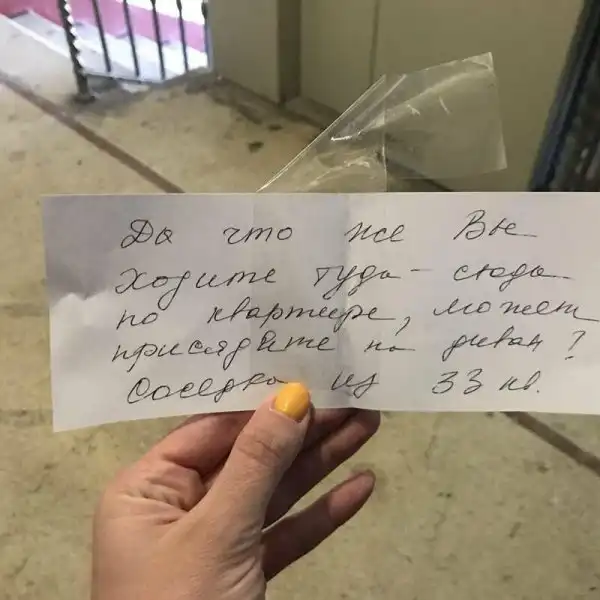 Да что же Вы
ходите туда - сюда
по квартире, может
присядите на диван?
Соседка из 33 кв.